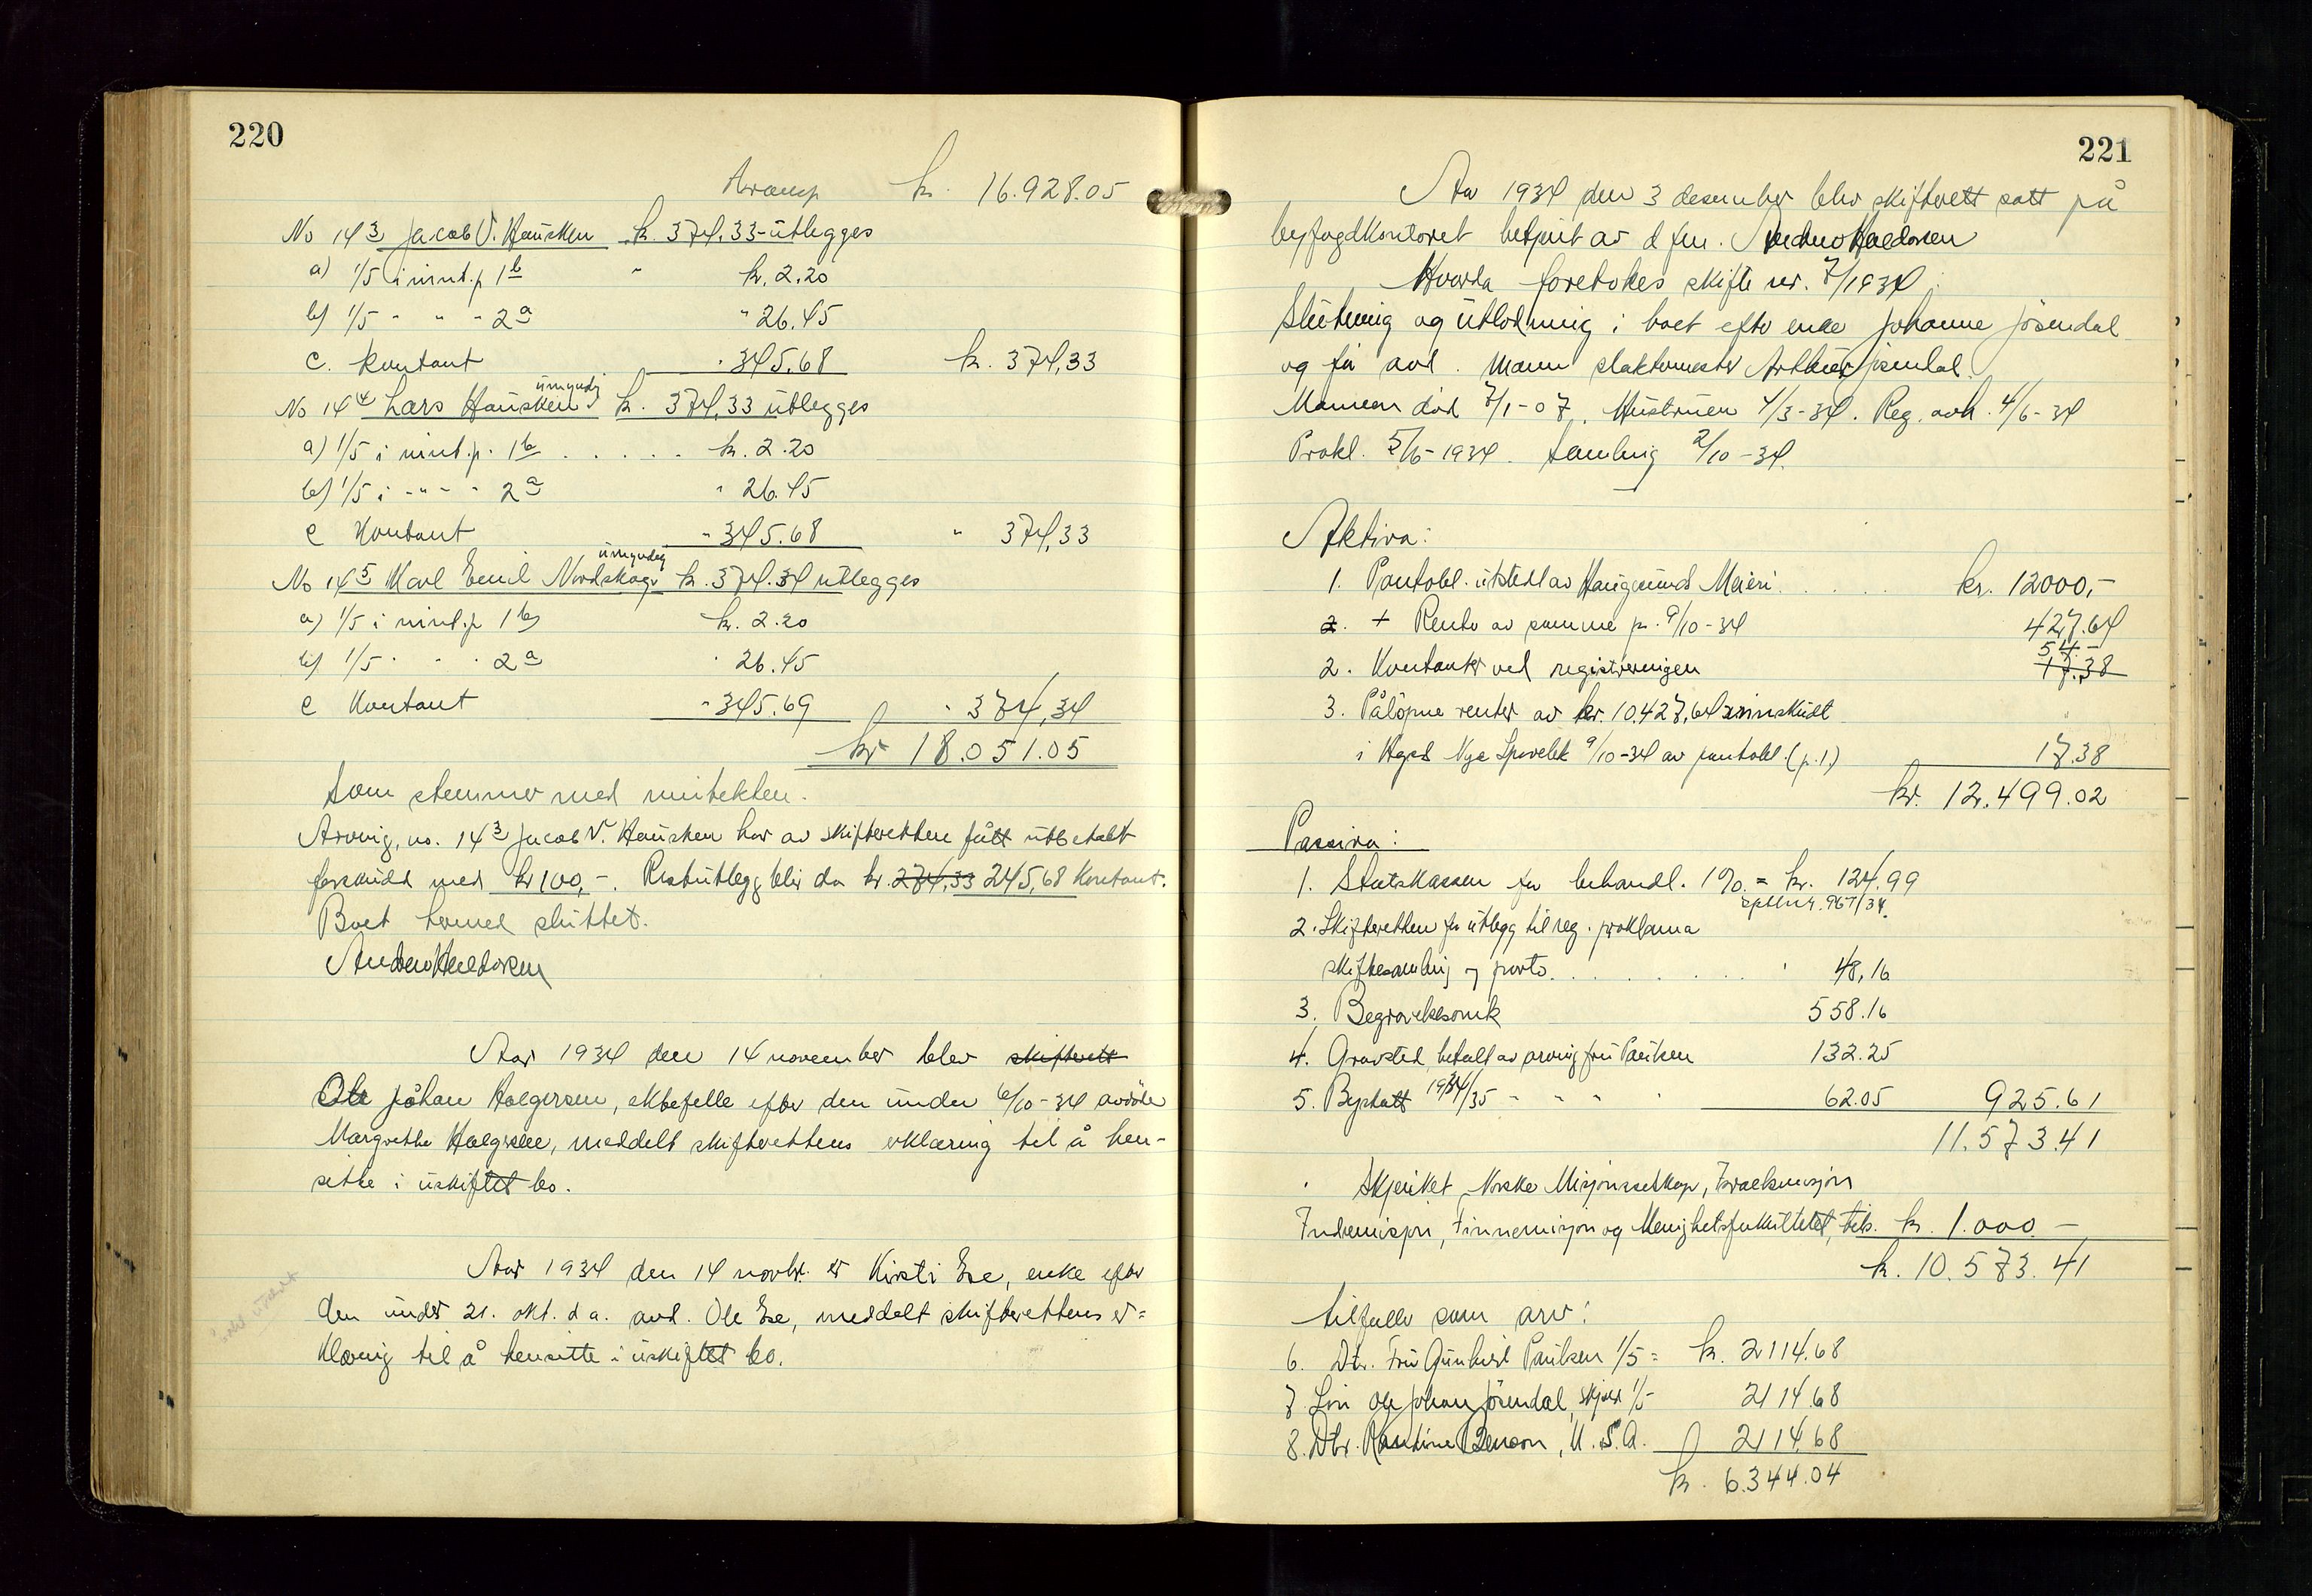 220
Transp. kr. 16.928.05
No 14 3 Jacob V. Hausken kr. 374,33 utlegges
a) 1/5 i innt.p 1b " kr. 2.20
b) 1/5 " " " 2a " 26.45
c. Kontant " 345.68 kr. 374,33
umyndig
No 14 4 Lars Hausken kr. 374,33 utlegges
a) 1/5 i innt.p. 1b . . . . . kr. 2.20
b) 1/5 i " " " 2a " 26.45
c Kontant " 345.68 " 374,33
umyndig
No 14 5 Karl Emil Nordskog kr. 374.34 utlegges
a) 1/5 i innt.p 1b kr. 2.20
b) 1/5 " " " 2a " 26.45
c Kontant " 345.69 " 374,34
kr 18.051.05
Som stemmer med inntekten.
Arving, no. 14 3 Jacob V. Hausken har av skifteretten fått utbetalt
forskudd med kr 100,-. Restutlegg blir da kr. 274,33 245,68 Kontant.
Boet hermed sluttet.
Aar 1934 den 14 november blev skifterett
Ole Johan Halgersen, ektefelle efter den under 6/10-34 avdöde
Margrethe, meddelt skifterettens erklæring til å hen-
sitte i uskiftet bo.
Aar 1934 den 14 novbr. er Kirsti Ese, enke efter
den under 21. okt. d a. avd. Ole Ese, meddelt skifterettens er=
klæring til å hensitte i uskiftet bo.
221
Aar 1934 den 3 desember blev skifterett satt på
byfogdkontoret betjent av d fm.
Hvorda foretokes skifte nr. 7/1934:
Slutning og utlodning i boet efter enke Johanne Jösendal
og för avd. mann slaktermester Arthur Jösendal.
Mannen död 7/1-07. Hustruen 4/3-34. Reg. avh. 4/6-34
Prokl. 5/6-1934. Samling 2/10-34.
Aktiva:
1. Pantobl. utstedt av Haugesunds Meieri . . . . kr. 12000,-
2. + Rente av samme pr. 9/10-34 427.64
54 -
2. Kontanter ved registreringen 17.38
3. Pålöpne renter av kr. 10.427,64 innskudt
i Hgsd Nye Sparebk 9/10-34 av pantobl. (p.1.) 17.38
kr. 12.499.02
Passiva:
1. Statskassen for behandl. 1% = kr. 124.99
967/34.
2. Skifteretten for utlegg til reg. proklama
skiftesamling og porto. . . . . . . . " 48,16
3. Begravelsesomk 558.16
4. Gravsted, betalt av arving fru Paulsen 132.25
5. Byskatt 1934/35 " " " " 62.05 925.61
11.573.41
Skjenket Norske Misjonsselskap, Israelsmisjon
Indremisjon, Finnemisjon og Menighetsfakultetet, tils. kr. 1.000 -
kr. 10.573.41
tilfaller som arv:
6. Dtr. Fru Gunhild Paulsen 1/5 = kr. 2114.68
7. Sön Ole Johan Jösendal, 1/5 2114.68
8. Dtr. Benson, U.S.A. 2114.68
kr. 6.344.04